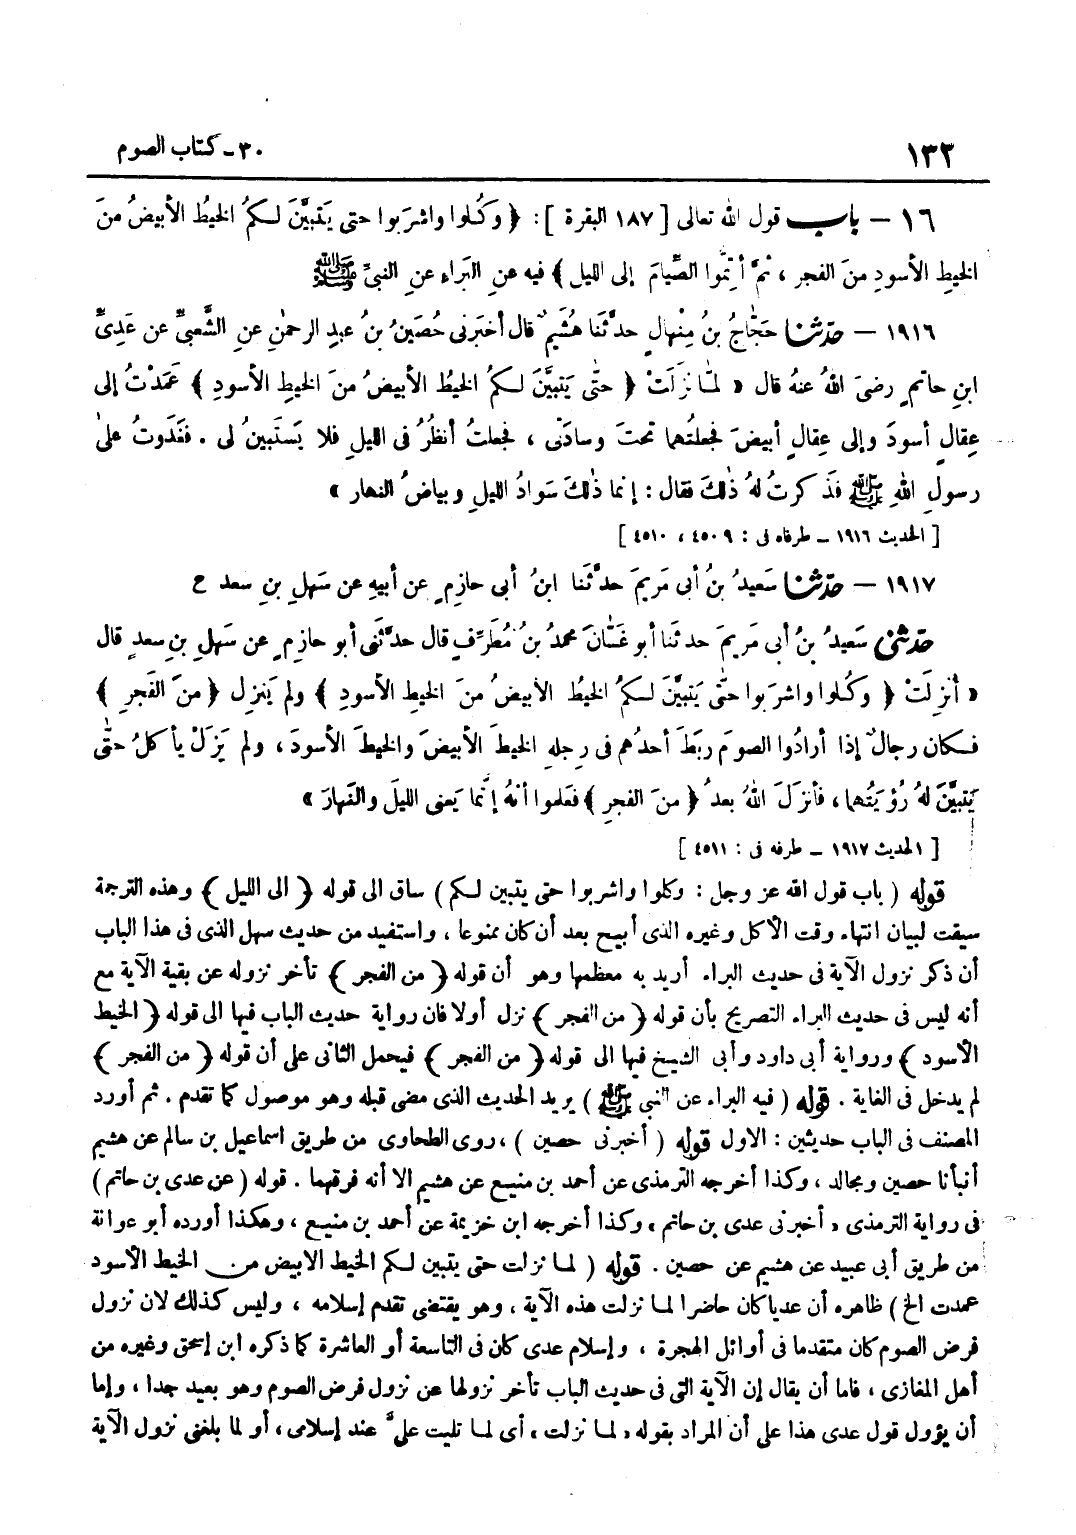 ١٣٢
٣٠ - كتاب الصوم
١٦ – باب قول الله تعالى [ ١٨٧ البقرة ] : ﴿ وَكُلوا واشرَبوا حتى يَتبيَّنَ لكمُ الخيطُ الأبيضُ منَ
الخيطِ الأسودِ منَ الفجر ، ثمَّ أتِمُّوا الصِّيامَ إلى الليل ﴾ فيه عنِ البَراءِ عنِ النبيِّ ﷺ
١٩١٦ – حدّثنا حَجّاجُ بنُ مِنْهالٍ حدَّثَنا هُشَيمٌ قال أخبَرنى حُصَينُ بنُ عبدِ الرحمٰنِ عنِ الشَّعبيِّ عن عَدِيِّ
ابنِ حاتمٍ رضىَ اللهُ عنهُ قال « لمّا نزَلَتْ ﴿ حتّٰى يَتبيَّنَ لكمُ الخيطُ الأبيضُ منَ الخيطِ الأسودِ ﴾ عَمَدْتُ إلى
عِقالٍ أسودَ وإلى عِقالٍ أبيضَ فجعلتُهما تحتَ وسادَتى ، فجعلتُ أنظُرُ فى الليلِ فلا يَستَبينُ لى . فغَدَوتُ علىٰ
رسولِ اللهِ ﷺ فذَكرتُ لهُ ذٰلكَ فقال : إنما ذٰلكَ سَوادُ الليلِ وبياضُ النهار »
[ الحديث ١٩١٦ – طرفاه فى : ٤٥٠٩ ، ٤٥١٠ ]
١٩١٧ – حدّثنا سَعيدُ بنُ أبى مَريمَ حدَّثَنا ابنُ أبى حازِمٍ عن أبيهِ عن سَهلِ بنِ سعد ح
حدثنى سَعيدُ بنُ أبى مَريمَ حدثَنا أبو غَسّانَ محمدُ بنُ مُطَرِّفٍ قال حدَّثَنى أبو حازِمٍ عن سَهلِ بنِ سعدٍ قال
« أُنزِلَتْ ﴿ وَكُلوا واشرَبوا حتّٰى يَتبيَّنَ لكمُ الخيطُ الأبيضُ منَ الخيطِ الأسودِ ﴾ ولم يَنزِل ﴿ منَ الفَجرِ ﴾
فكان رجالٌ إذا أرادُوا الصومَ ربَطَ أحدُهم فى رِجلهِ الخيطَ الأبيضَ والخيطَ الأسودَ ، ولم يَزَلْ يأكلُ حتّٰى
يَتبيَّنَ لهُ رُؤيَتُهما ، فأنزَلَ اللهُ بعدُ ﴿ منَ الفجرِ ﴾ فعَلموا أنهُ إنَّما يَعنى الليلَ والنهارَ »
[ الحديث ١٩١٧ – طرفه فى : ٤٥١١ ]
قوله ( باب قول الله عز وجل : وكلوا واشربوا حتى يتبين لكم ) ساق الى قوله ﴿ الى الليل ﴾ وهذه الترجمة
سيقت لبيان انتهاء وقت الأكل وغيره الذى أبيح بعد أن كان ممنوعا ، واستفيد من حديث سهل الذى فى هذا الباب
أن ذكر نزول الآية فى حديث البراء أريد به معظمها وهو أن قوله ﴿ من الفجر ﴾ تأخر نزوله عن بقية الآية مع
أنه ليس فى حديث البراء التصريح بأن قوله ﴿ من الفجر ﴾ نزل أولا فان رواية حديث الباب فيها الى قوله ﴿ الخيط
الأسود ﴾ ورواية أبى داود وأبى الشيخ فيها الى قوله ﴿ من الفجر ﴾ فيحمل الثانى على أن قوله ﴿ من الفجر ﴾
لم يدخل فى الغاية . قوله ( فيه البراء عن النبي ﷺ ) يريد الحديث الذى مضى قبله وهو موصول كما تقدم . ثم أورد
المصنف فى الباب حديثين : الاول قوله ( أخبرنى حصين ) ، روى الطحاوى من طريق اسماعيل بن سالم عن هشيم
أنبأنا حصين ومجالد ، وكذا أخرجه الترمذى عن أحمد بن منيع عن هشيم الا أنه فرقهما . قوله ( عن عدى بن حاتم )
فى رواية الترمذى « أخبرنى عدى بن حاتم » وكذا أخرجه ابن خزيمة عن أحمد بن منيع ، وهكذا أورده أبو عوانة
من طريق أبى عبيد عن هشيم عن حصين . قوله ( لما نزلت حتى يتبين لكم الخيط الابيض من الخيط الأسود
عمدت الخ ) ظاهره أن عديا كان حاضرا لما نزلت هذه الآية ، وهو يقتضى تقدم إسلامه ، وليس كذلك لان نزول
فرض الصوم كان متقدما فى أوائل الهجرة ، وإسلام عدى كان فى التاسعة أو العاشرة كما ذكره ابن إسحق وغيره من
أهل المغازى ، فاما أن يقال إن الآية التى فى حديث الباب تأخر نزولها عن نزول فرض الصوم وهو بعيد جدا ، وإما
أن يؤول قول عدى هذا على أن المراد بقوله « لما نزلت » أى لما تليت علىَّ عند إسلامى ، أو لما بلغنى نزول الآية